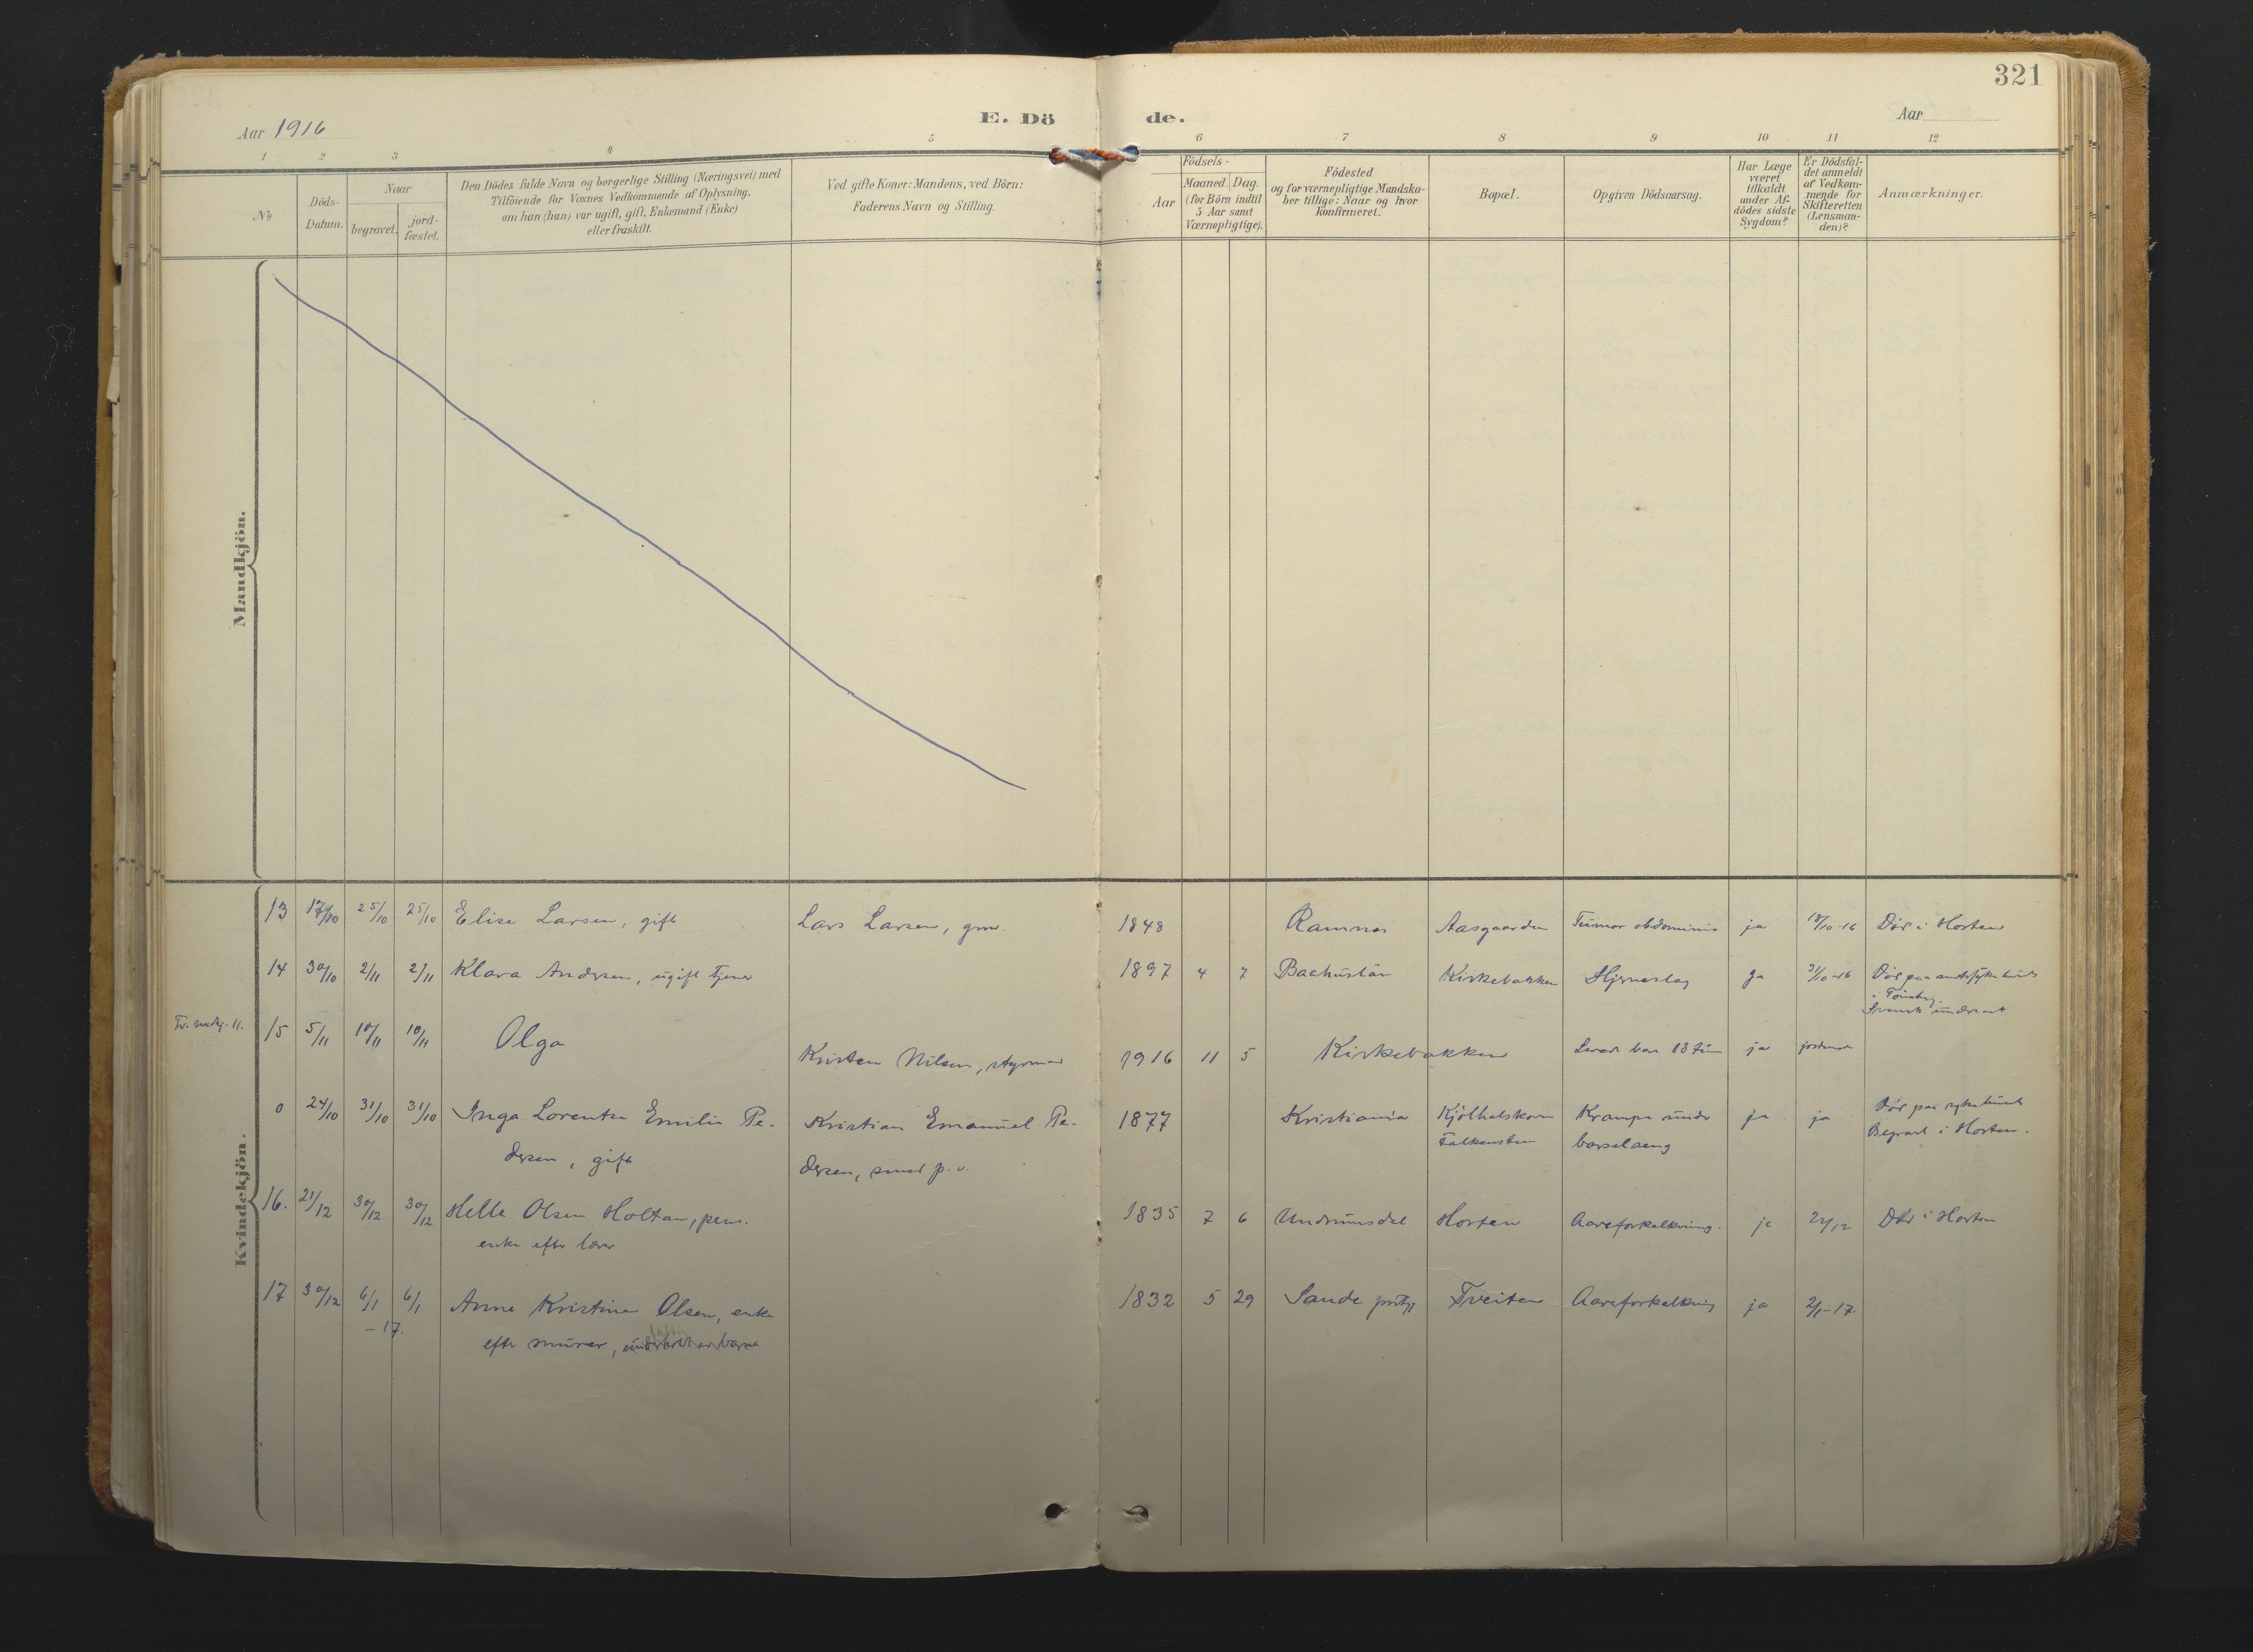 321
Aar 1916
E. Dö de.
Aar
1 2 3 4 5 6 7 8 9 10 11 12
No
Döds-
Datum.
Naar
begravet.
jord-
fæstet.
Den Dödes fulde Navn og borgerlige Stilling (Næringsvei) med
Tilföiende for Voxnes Vedkommende af Oplysning,
om han (hun) var ugift, gift, Enkemand (Enke)
eller fraskilt.
Ved gifte Koner: Mandens, ved Börn:
Faderens Navn og Stilling.
Födsels-
Aar
Maaned. Dag.
(for Börn indtil
5 Aar samt
Værnepligtige).
Födested
og for værnepligtige Mandska-
ber tillige: Naar og hvor
konfirmeret.
Bopæl.
Opgiven Dödsaarsag.
Har Læge
været
tilkaldt
under Af-
dödes sidste
Sygdom?
Er Dödsfal-
det anmeldt
af Vedkom-
mende for
Skifteretten
(Lensman-
den)?
Anmærkninger.
Mandkjön.
Kvindekjön.
13 17/10 25/10 25/10 Elise Larsen, gift Lars Larsen, grm. 1848 Ramnes Aasgaarden Tumor abdominis ja 18/10-16 Död i Horten
14 30/10 2/11 2/11 Klara Andersen, ugift tjener 1897 4 7 Baahuslän Kirkebakken Hjerneslag ja 31/10-16 Död paa amtssykehuset
i Tönsberg.
Svensk undersaat
15 5/11 10/11 10/11 Olga
Kristen Nilsen, styrmand 1916 11 5 Kirkebakken Levede bare 18 tim ja
0 24/10 31/10 31/10 Inga Lorentze Emilie Pe- Kristian Emanuel Pe- 1877 Kristiania Kjölhalskoven Krampe under ja ja Död paa sykehuset
dersen, gift dersen, smed p. v. Falkensten barselseng Begravet i Horten.
16. 21/12 30/12 30/12 Helle Olsen Holtan, pens. 1835 7 6 Undrumsdal Horten Aareforkalkning. ja 22/12 Död i Horten
enke efter lærer
17 30/12 6/1 6/1 Anne Kristine Olsen, enke 1832 5 29 Sande prstgj Tveiten Aareforkalkning ja 2/1-17.
-17.
efter murer, underholdt av barna